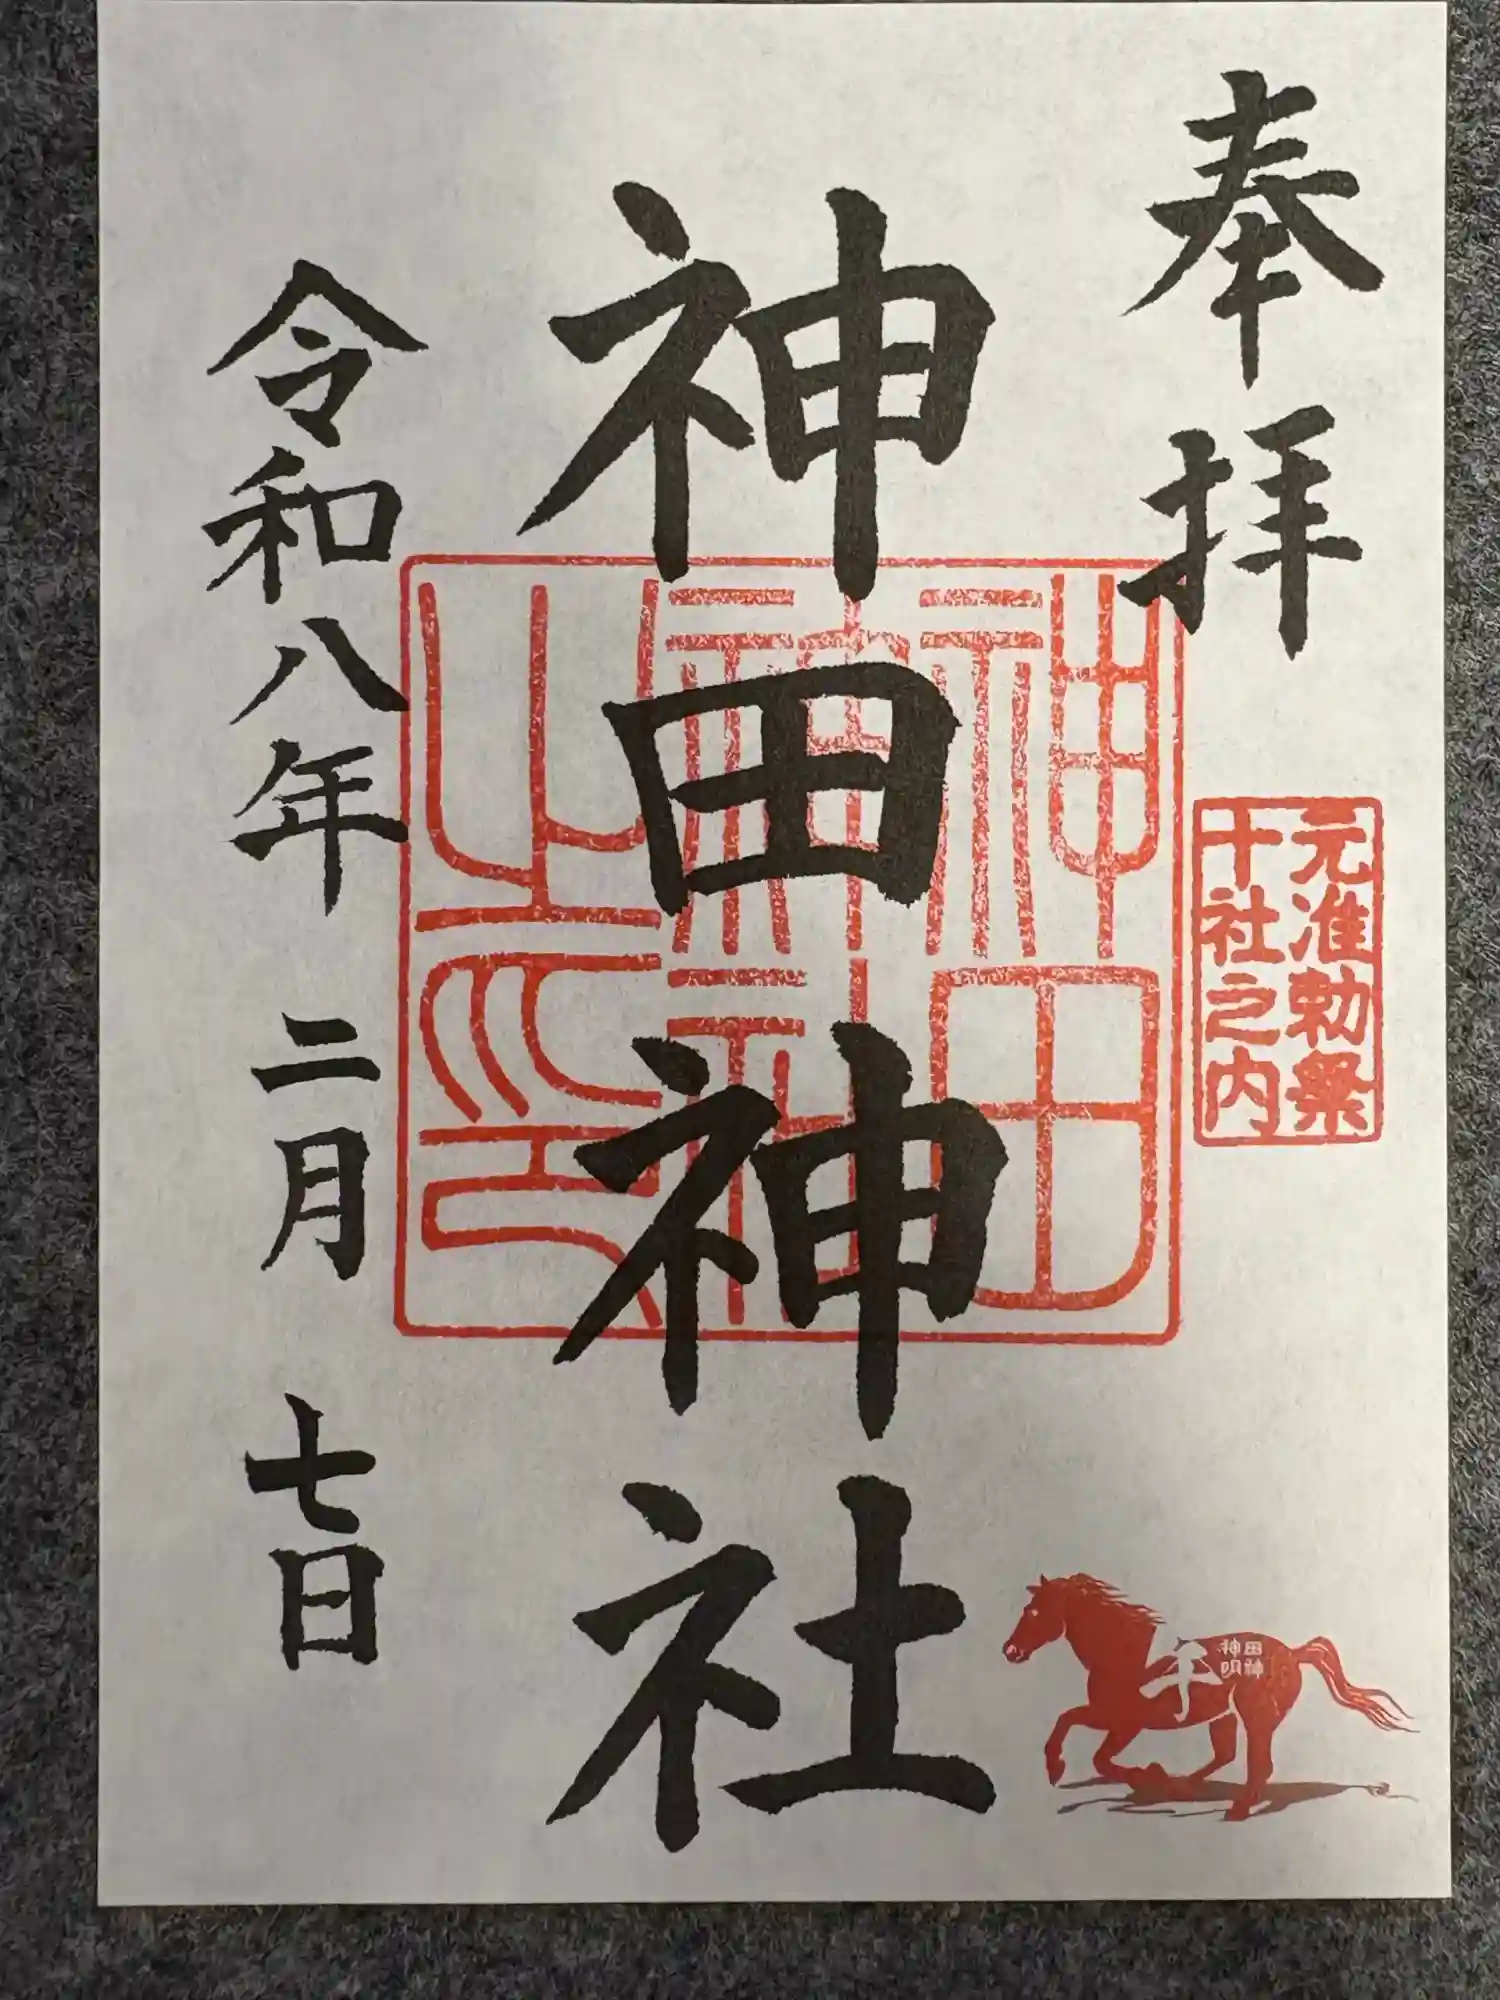 奉拝
元准勅祭
十社之内
神田神社
神田
神社
神
印
之
午
神田
明神
令和八年 二月 七日